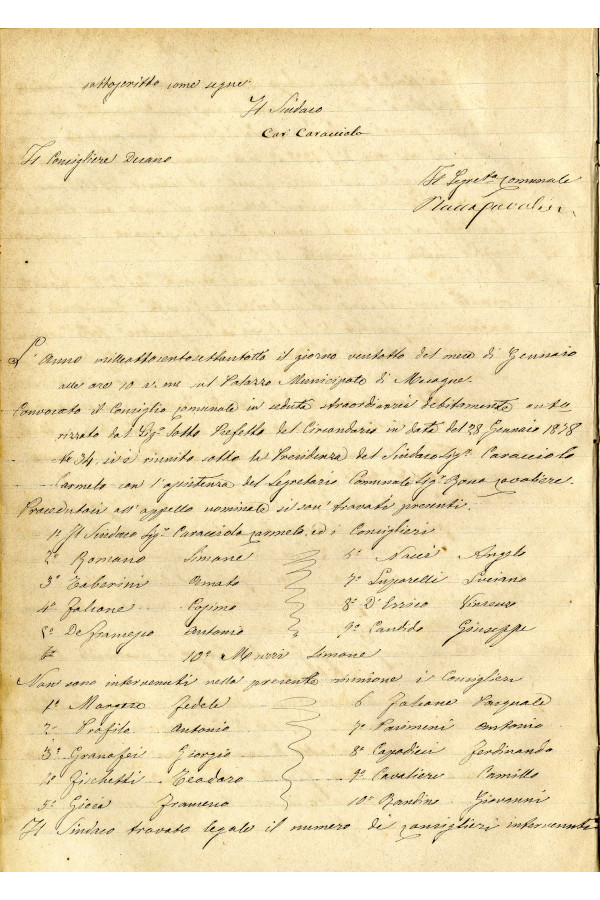 sottoscritto come segue
Il Sindaco
Car Caracciolo
Il Consigliere Decano
Il Segret.o Comunale
L'Anno milleottocentosettantotto il giorno ventotto del mese di Gennaio
alle ore 10 a. m. nel Palazzo Municipale di Mesagne.
Convocato il Consiglio comunale in seduta straordinaria debitamente auto
rizzato dal Sig.r Sotto Prefetto del Circondario in data del 28 Gennaio 1878
N.o 34, si è riunito sotto la Presidenza del Sindaco Sig.r Caracciolo
Carmelo con l'assistenza del Segretario Comunale Sig.r Cavaliere.
Procedutasi all'appello nominale si son trovati presenti.
1.o Il Sindaco Sig.r Caracciolo Carmelo, ed i Consiglieri
2.o Romano Simone 6.o Nacci Angelo
3.o Taberini Donato 7.o Luparelli Luciano
4.o Falcone Cosimo 8.o D'Errico Vincenzo
5.o De Antonio 9.o Candido Giuseppe
10.o Murri Simone
Non sono intervenuti nella presente riunione i Consiglieri
1.o Fedele 6 Falcone Pasquale
2.o Profilo Antonio 7.o Antonio
3.o Granafei Giorgio 8.o Capodieci Ferdinando
4.o Fischetti Teodoro 9.o Cavaliere Camillo
5.o Gioia 10.o Bardino Giovanni
Il Sindaco trovato legale il numero di Consiglieri intervenuti